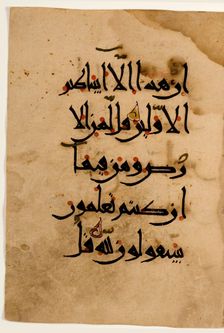 ان هذا الا اساطير
الاولين قل لمن الا
رض ومن فيها
ان كنتم تعلمون
سيقولون لله قل